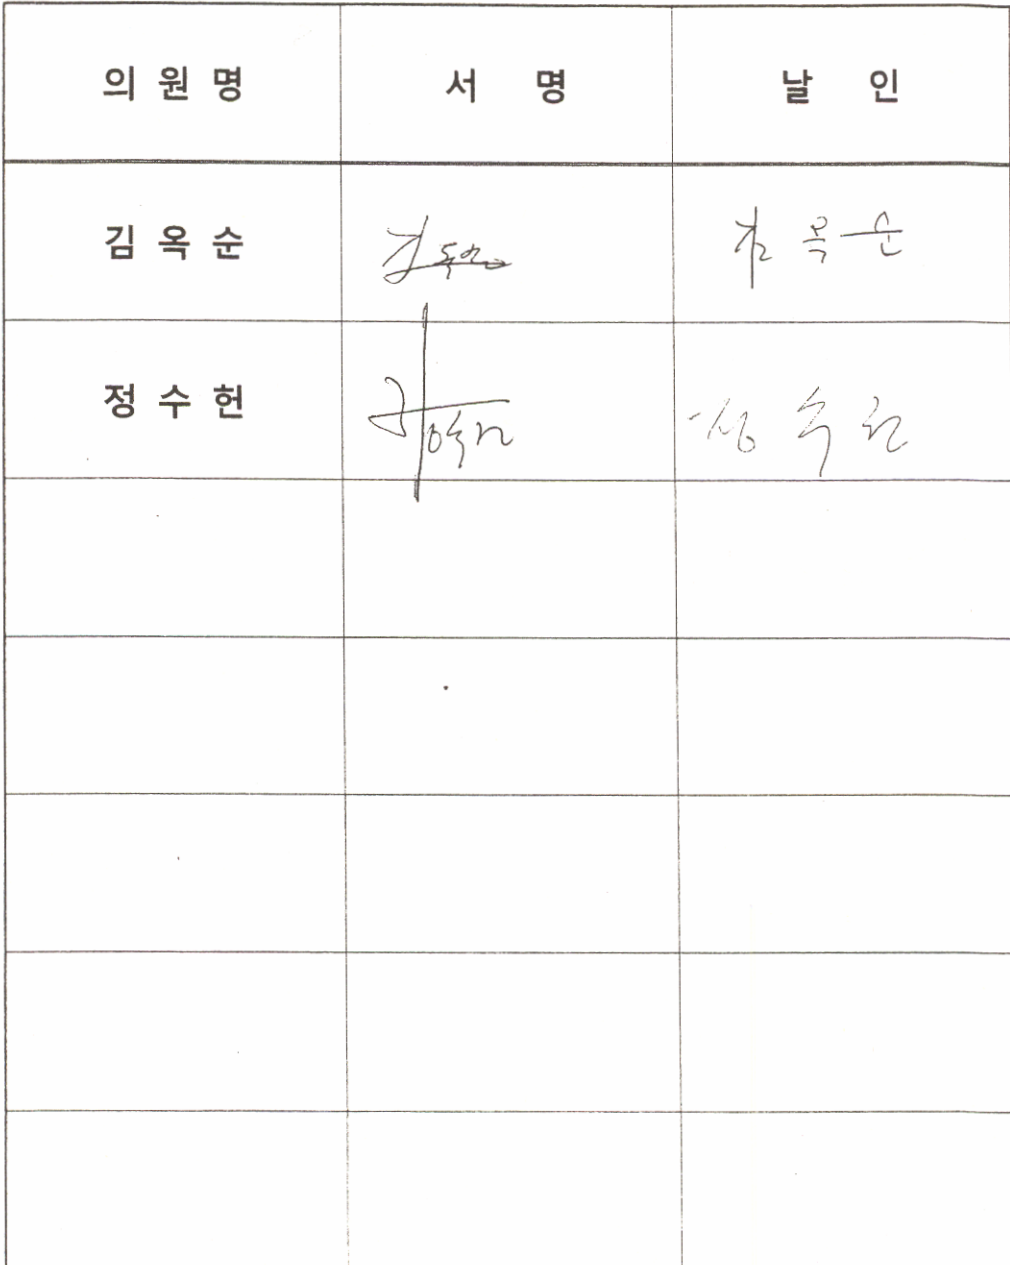 의 원 명 서 명 날 인
김 옥 순 김 옥 순
정 수 헌 정 수 헌